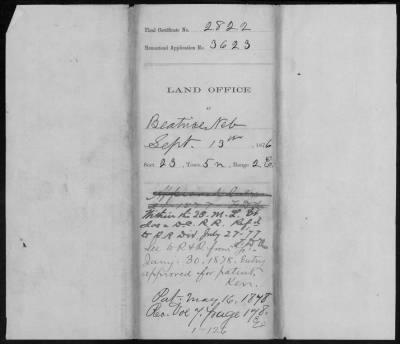 Final Certificate No. 2822
Homestead Application No. 3623
LAND OFFICE
AT
Beatrice Neb
Sept. 13th, 1876
Sect. 23, Town. 5 n, Range 2 E.
Approved
Within the 20. M. L.
R. R. Ref'd
to R R Div. July 27. 77.
See R & R. from
Jany. 30. 1878. Entry
approved for patent,
Pat. May 16, 1878.
Rec. Vol 7. page 178.
1-126